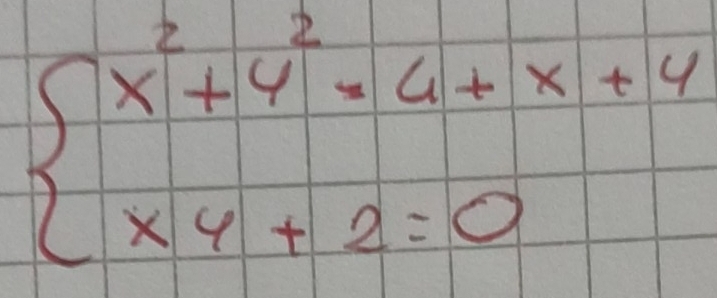 x² + y² = 4 + x + y
xy + 2 = 0